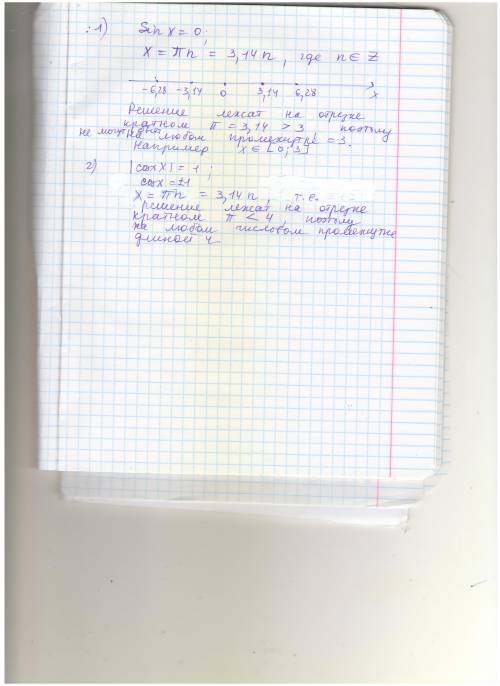 1) Sin x = 0;
x = πn = 3,14 n, где n ∈ Z
-6,28 -3,14 0 3,14 6,28 x
Решение лежат на отрезке
кратном π = 3,14 > 3 поэтому
не могут быть на любом промежутке = 3.
Например x ∈ [0; 3]
2) |cos x| = 1;
cos x = ±1
x = πn = 3,14 n, т.е.
решение лежат на отрезке
кратном π < 4, поэтому
на любом числовом промежутке
длиной 4